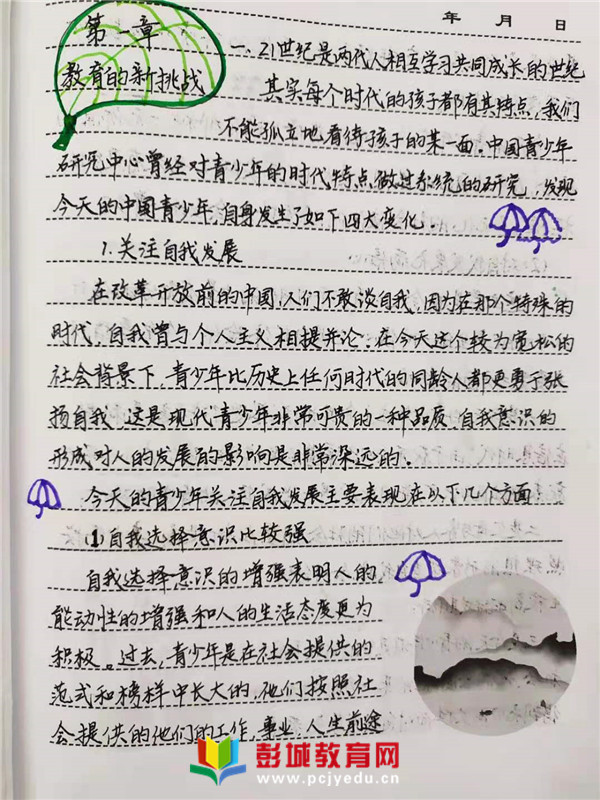 年 月 日
第一章
教育的新挑战
一、21世纪是两代人相互学习共同成长的世纪
其实每个时代的孩子都有其特点,我们
不能孤立地看待孩子的某一面。中国青少年
研究中心曾经对青少年的时代特点做过系统的研究,发现
今天的中国青少年,自身发生了如下四大变化。
1.关注自我发展
在改革开放前的中国,人们不敢谈自我,因为在那个特殊的
时代,自我曾与个人主义相提并论。在今天这个较为宽松的
社会背景下,青少年比历史上任何时代的同龄人都更勇于张
扬自我,这是现代青少年非常可贵的一种品质,自我意识的
形成对人的发展的影响是非常深远的。
今天的青少年关注自我发展主要表现在以下几个方面:
(1)自我选择意识比较强
自我选择意识的增强表明人的
能动性的增强和人的生活态度更为
积极。过去,青少年是在社会提供的
范式和榜样中长大的,他们按照社
会提供的他们的工作,事业,人生前途
彭城教育网
www.pcjyedu.cn